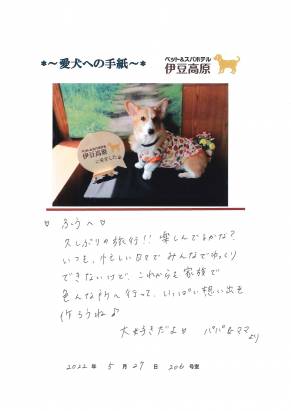 ペット&スパホテル
伊豆高原
*~愛犬への手紙~*
ペット&スパホテル
伊豆高原
に来ました♪
♡ ふうへ ♡
久しぶりの旅行!! 楽しんでるかな?
いつも、忙しい日々でみんなでゆっくり
できないけど、これからも家族で
色んな所へ行って、いっぱい想い出を
作ろうね♪
大好きだよ♡ パパ&ママより
2022年 5月 27日 206号室